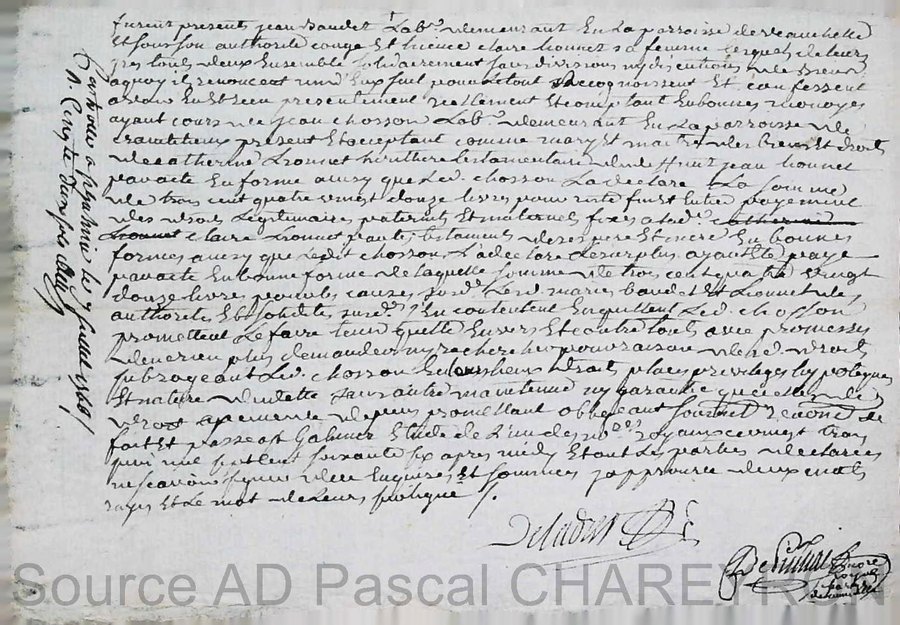 furent presents jean baudet Lab.r demeurant En La parroisse de
Et sous son authorité congé Et licence claire Lionnet sa femme lesquels de leurs
gres tous deux Ensemble solidairement sans division ny discution de biens
a quoy ils renoncent un d'Eux seul pour Le tout Recognoissent Et confessent
avoir Eu Et Receu presentement reellement Et comptant En bonnes monoyes
ayant cours de jean chosson Lab.r demeurant En La parroisse de
present Et acceptant comme mary Et maitre des biens Et droits
de catherine Lionnet heritiere testamentaire de deffunt jean Lionnet
par acte En forme ainsy que Led. chosson La declaré La somme
de trois cent quatre vingt douze Livres pour reste fin Et Entier payement
des droits Legitimaires paternels Et maternels fixés a lad.e catherine
Lionnet claire Lionnet par testaments de ses pere Et mere En bonnes
formes ainsy que Ledit chosson L'a declaré Le surplus ayant Eté payé
par acte En bonne forme de laquelle somme de trois cent quatre vingt
douze Livres pour les causes susd.es Lesd. mariés baudet Et Lionnet de
authorité Et solidité susd.e s'En contentent En quittent Led. chosson
promettent Le faire tenir quitte Envers Et contre tous avec promesse
de n'En rien plus demander ny rechercher pour raison desd. droits
subrogeant Led. chosson En Leurs lieux droits places privileges hypoteques
Et nature de dette sans autre maintenue ny garantie que celle de
droit a peine de tous depens promettant obligeant soumet renoncé
fait Et passé a St Galmier Etude de L'un des no.res royaux ce vingt trois
juin mil sept cent soixante six apres midy Et ont Les parties declarées
ne scavoir signer de ce Enquises Et sommées j'approuve deux mots
rayés Et Le mot de Leurs
Controlé a St Galmier le
Source AD Pascal CHAREYRON